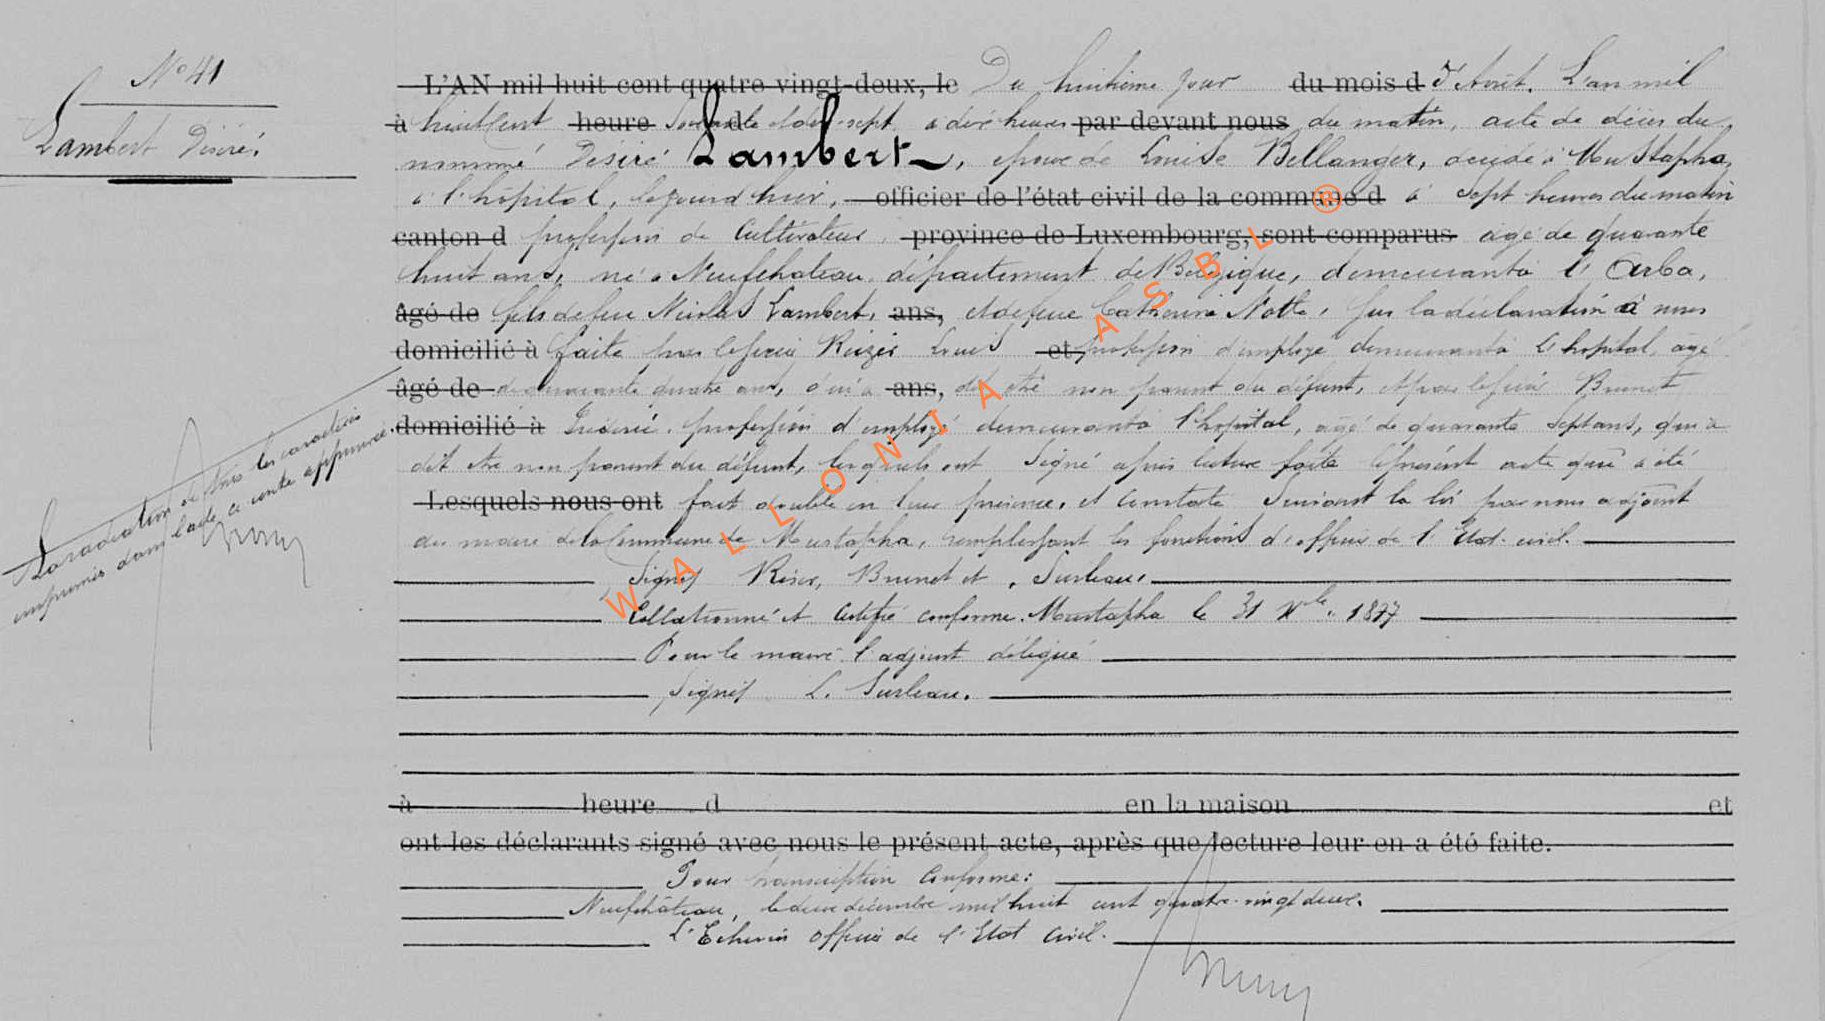 N° 41
Lambert Désiré.
L'AN mil huit cent quatre vingt-deux, le Du huitième jour du mois d d'Août. L'an mil
à huit cent heure Soixante d dix-sept, à dix heures par devant nous du matin, acte de décès du
nommé Désiré Lambert, époux de Louise Bellanger, décédé à Mustapha,
à l'hôpital, le jour d'hier, officier de l'état civil de la commune d à Sept heures du matin
canton d profession de Cultivateur, province de Luxembourg, sont comparus âgé de quarante
huit ans, né à Neufchateau, département de Belgique, demeurant à l'Arba,
âgé de fils de feu Nicolas Lambert, ans, et de feue Catherine Notte, sur la déclaration à nous
domicilié à faite par le sieur Louis et profession d'employé demeurant à l'hôpital, âgé
âgé de de quarante quatre ans, qui a ans, dit être non parent du défunt, et par le sieur Brunet
domicilié à profession d'employé demeurant à l'hôpital, âgé de quarante sept ans, qui a
dit être non parent du défunt, lesquels ont Signé après lecture faite le présent acte qui a été
Lesquels nous ont fait double en leur présence, et constaté Suivant la loi par nous adjoint
du maire de la Commune de Mustapha, remplissant les fonctions d'officier de l'Etat-civil.
Signés Brunet et, Surleau,
Collationné et Certifié conforme. Mustapha le 31 Xbre. 1877
Pour le maire l'adjoint délégué
Signés L. Surleau.
à heure d en la maison et
ont les déclarants signé avec nous le présent acte, après que lecture leur en a été faite.
Pour transcription Conforme:
Neufchâteau, le deux décembre mil huit cent quatre-vingt deux.
L'Echevin officier de l'Etat Civil.
La radiation de tous les caractères
imprimés dans l'acte ci-contre approuvée.
WALLONIA ASBL ®